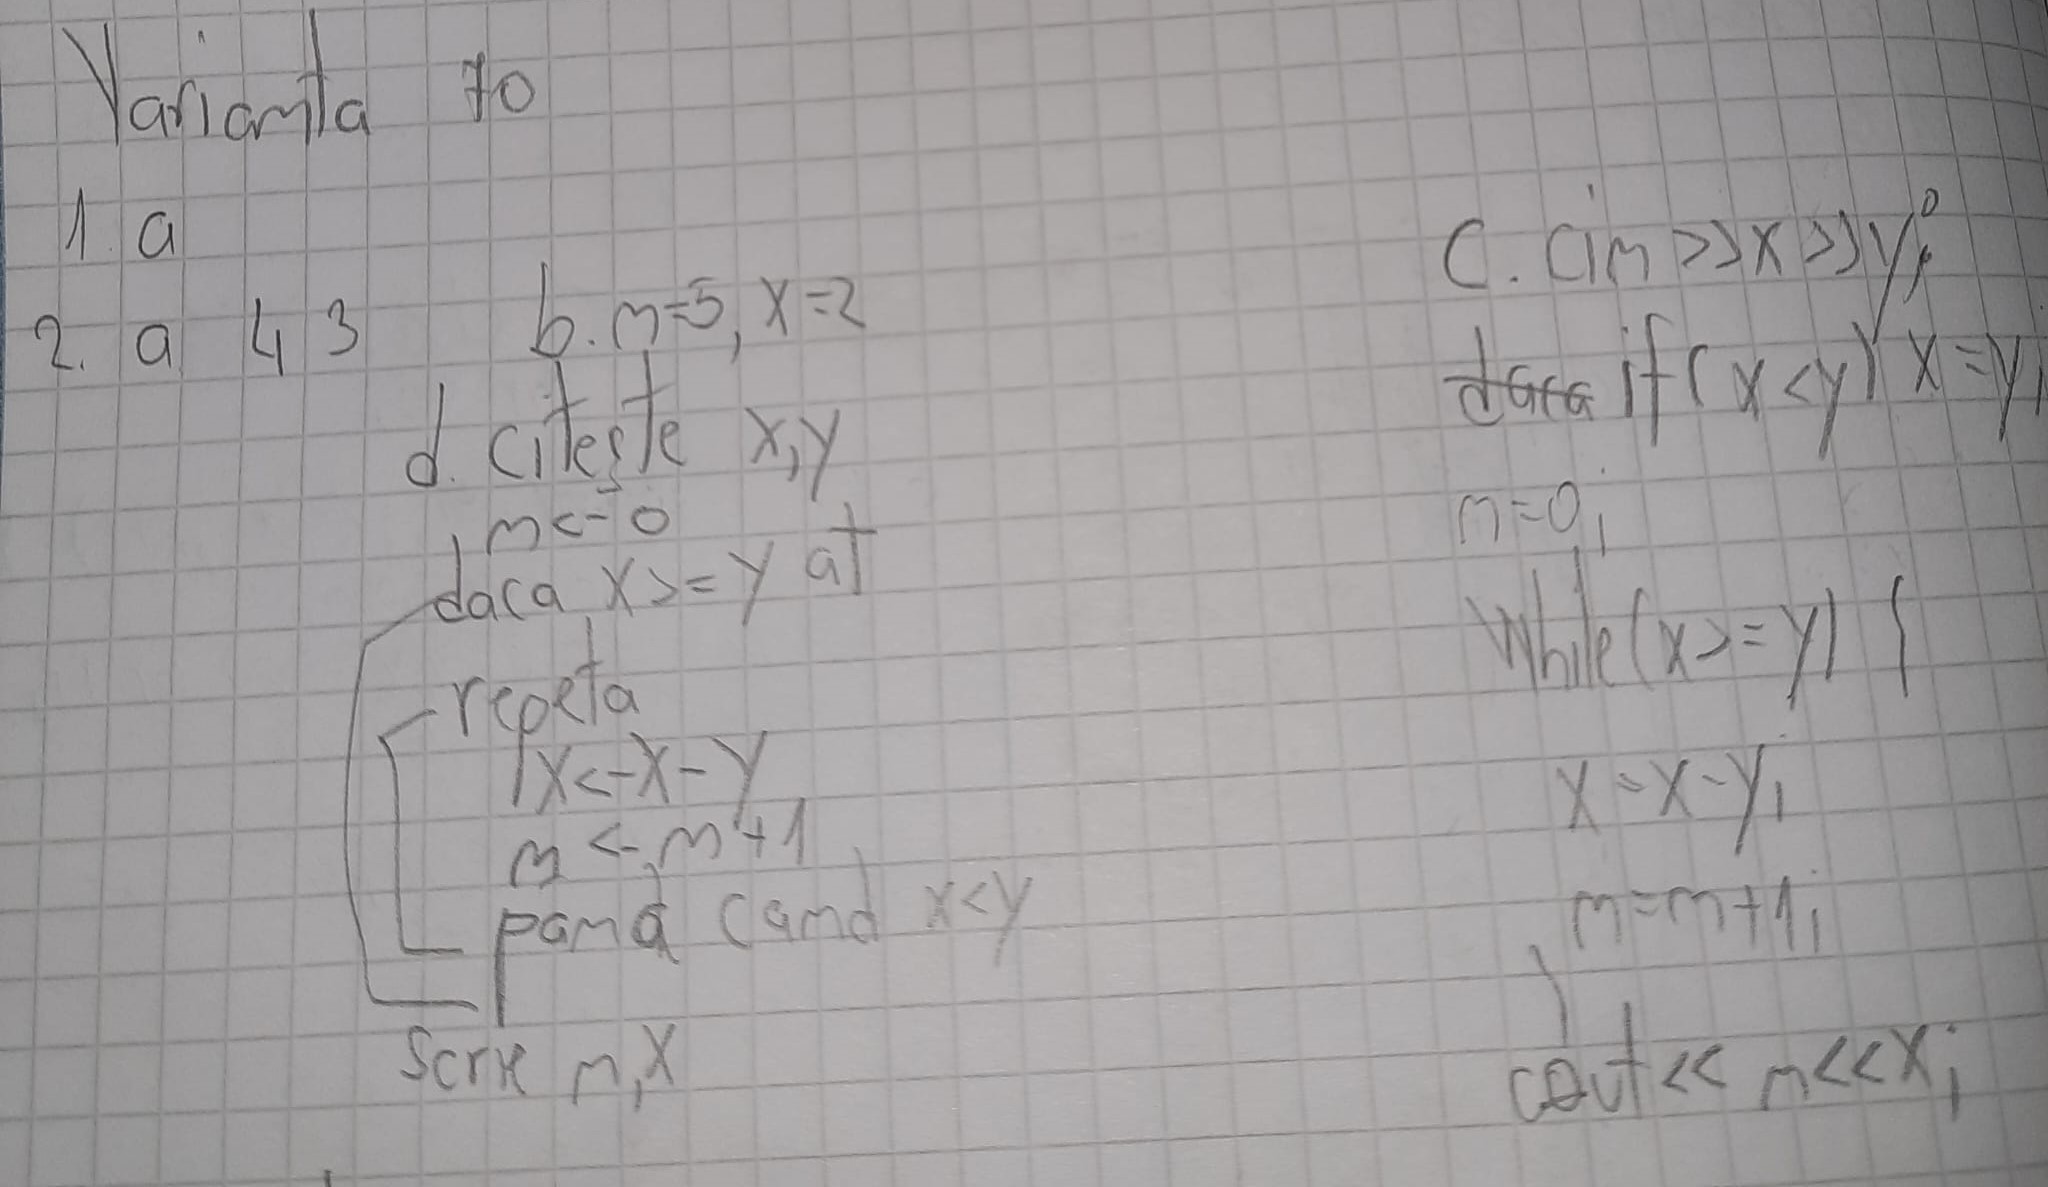 Varianta 70
1. a
2. a 4 3
b. n=5, x=2
d. citește x,y
n<-0
daca x>=y at
repeta
x<-x-y
n<-n+1
pană cand x<y
Scrie n,x
C. cin>>x>>y;
daca if(x<y) x=y;
n=0;
While(x>=y) {
x=x-y;
n=n+1;
}
cout<< n<<x;